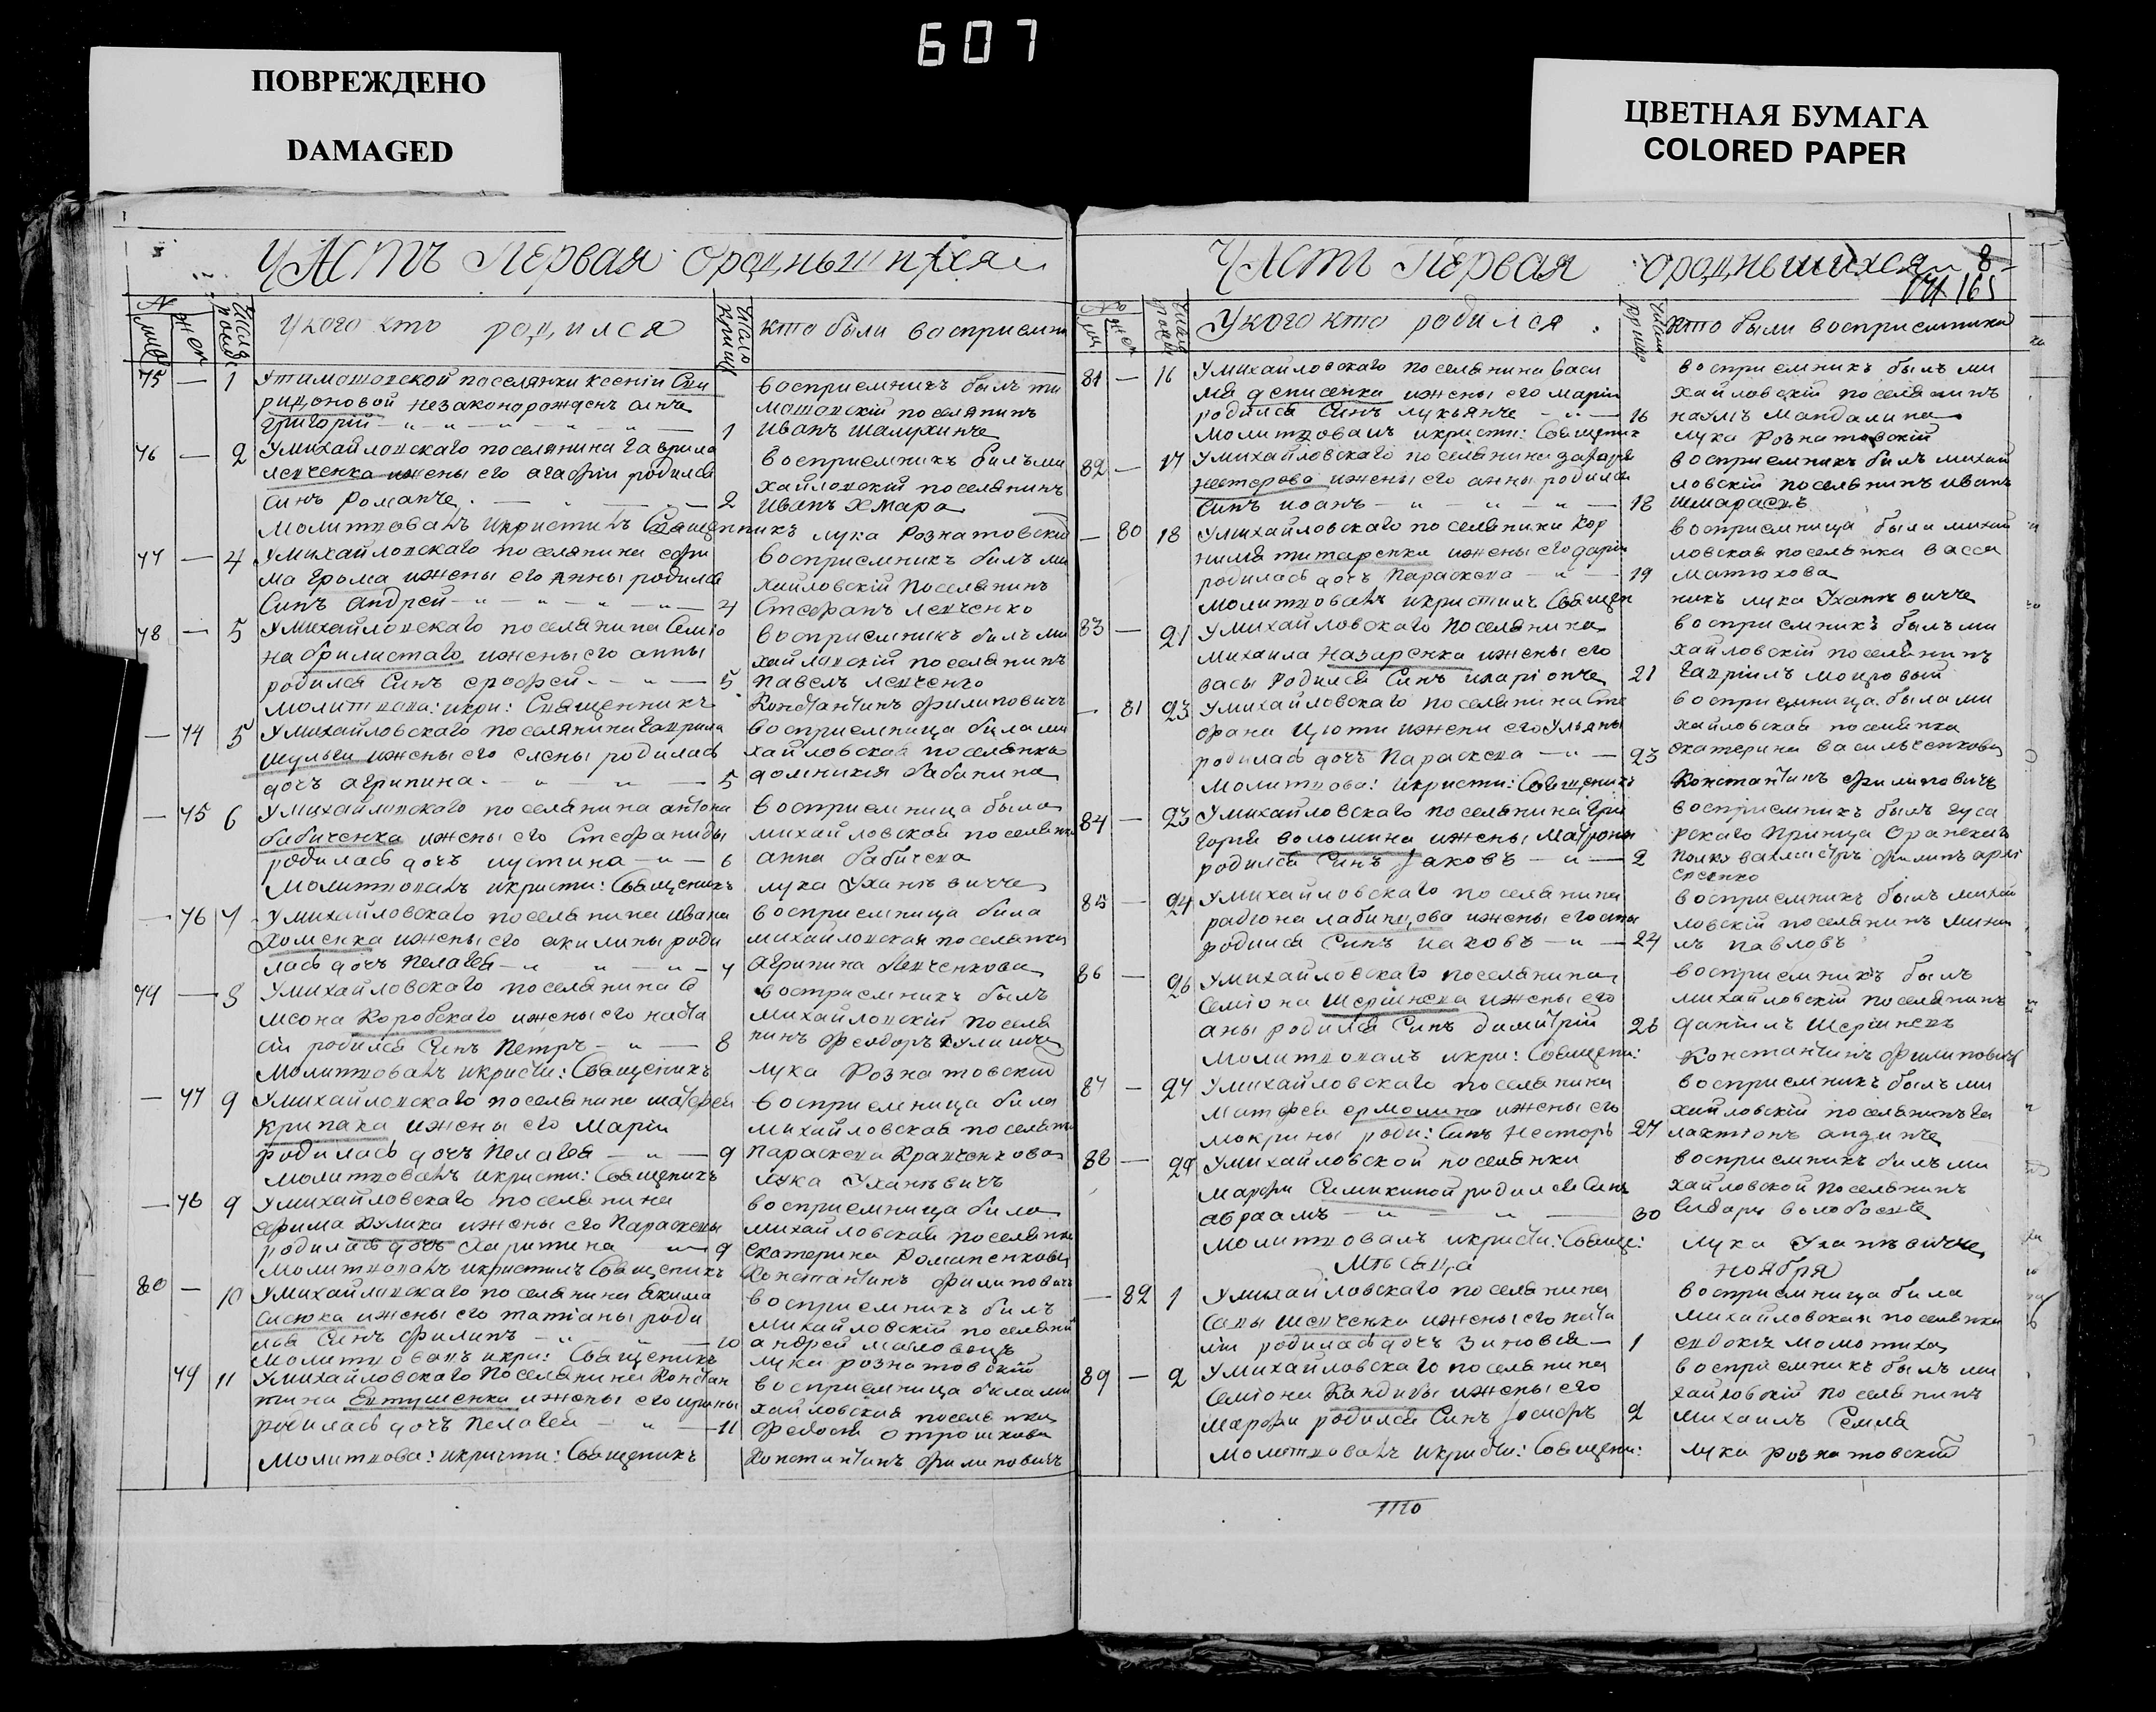 607
ПОВРЕЖДЕНО
DAMAGED
ЦВЕТНАЯ БУМАГА
COLORED PAPER
ЧАСТЬ Первая
У кого кто родился
кто были восприемни
75 — 1 поселянки ксеніи Спи
ридоновой незаконорожденъ
григорій 1
восприемникъ былъ ти
поселянинъ
Иванъ
76 — 2 Умихайловскаго поселянина гаврила
левченка ижены его агафіи родился
Синъ Романъ 2
восприемникъ билъ ми
хайловскій поселянинъ
Иванъ Хмара
Молитвовалъ икристилъ Священникъ лука Рознатовскій
77 — 4 Умихайловскаго поселянина ефи
ма грома ижены его Анны родился
Синъ андрей 4
восприемникъ билъ ми
хайловскій Поселянинъ
Стефанъ левченко
78 — 5 Умихайловскаго поселянина Семіо
на ижены его анны
родился Синъ ерофей 5
восприемникъ билъ ми
хайловскій поселянинъ
Павелъ левченко
молитвова: икри: Священникъ Константинъ филиповичъ
— 74 5 Умихайловскаго поселянина гаврила
шульги ижены его елены родилась
дочъ агрипина 5
восприемница била ми
хайловская поселянка
домникия бабанина
— 75 6 Умихайловскаго поселянина антона
бабиченка ижены его Стефаниды
родилась дочъ иустина 6
восприемница была
михайловская поселянка
анна бабичева
Молитвовалъ икристи: Священикъ лука Уханевичъ
— 76 7 Умихайловскаго поселянина ивана
хоменка ижены его акилины роди
лась дочъ Пелагея 7
восприемница била
михайловская поселянка
агрипина Левченкова
79 — 8 Умихайловскаго поселянина С
меона Коробскаго ижены его наста
сіи родился Синъ Петръ 8
востриемникъ былъ
михайловскій поселя
нинъ Феодоръ
Молитвовалъ икристи: Священикъ лука Рознатовскій
— 77 9 Умихайловскаго поселянина матфея
крипака ижены его Маріи
родилась дочъ Пелагея 9
восприемница била
михайловская поселян
Параскева Кравченкова
молитвовалъ икристи: Священикъ лука Уханевичъ
— 78 9 Умихайловскаго поселянина
ефима кулика ижены его Параскевы
родилась дочъ Харитина 9
восприемница била
михайловская поселянка
екатерина Романенкова
молитвовалъ икристилъ Священикъ Константинъ филиповичъ
80 — 10 Умихайловскаго поселянина Якима
ижены его татіаны роди
лся Синъ Филипъ 10
восприемникъ билъ
михайловскій поселяни
андрей
молитвовалъ икри: Священикъ лука рознатовскій
79 11 Умихайловскаго Поселянина Констан
тина Евтушенка ижены его ирины
родилась дочъ Пелагея 11
восприемница била ми
хайловская поселянка
Федося отрошкова
Молитвова: икристи: Священикъ Константинъ филиповичъ
ЧАСТЬ Первая ородившихся 8
165
У кого кто родился
кто были восприемники
81 — 16 Умихайловскаго поселянина васи
лия денисенка ижены его маріи
родился Синъ лукьянъ 16
восприемникъ былъ ми
хайловскій поселянинъ
наумъ мандалина
молитвовалъ икристи: Священик лука Рознатовскій
82 — 17 Умихайловскаго поселянина захарія
нестерова ижены его анны родился
Синъ иоанъ 18
восприемникъ билъ михай
ловскій поселянинъ иванъ
— 80 18 Умихайловскаго поселянина кор
нилия титаренка ижены его даріи
родилась дочъ Параскева 19
восприемница была михай
ловская поселянка васса
матюхова
молитвовалъ икристилъ Священ никъ лука Уханевичъ
83 — 21 Умихайловскаго поселянина
михаила назаренка ижены его
васы Родился Синъ иларіонъ 21
восприемникъ былъ ми
хайловскій поселянинъ
гавріилъ
— 81 23 Умихайловскаго поселянина Сте
фана Цюти ижени его Ульяны
родилась дочъ Параскева 23
восприемница была ми
хайловская поселянка
екатерина васильченкова
молитвова: икристи: Священикъ Константинъ филиповичъ
84 — 23 Умихайловскаго поселянина гри
горія волошина ижены матроны
родился Синъ Іаковъ 2
восприемникъ былъ гуса
рскаго Принца Оранскаго
полку вахмистръ филипъ
85 — 24 Умихайловскаго поселянина
радіона ижены его
родился Синъ иаковъ 24
восприемникъ былъ михай
ловскій поселянинъ михаи
лъ павловъ
86 — 26 Умихайловскаго поселянина
Семіона ижены его
аны родился Синъ димитрій 26
восприемникъ былъ
михайловскій поселянинъ
даніилъ
молитвовалъ икри: Священи: Константинъ филиповичъ
87 — 27 Умихайловскаго поселянина
Матфея ермолина ижены его
мокрины роди: Синъ Несторъ 27
восприемникъ былъ ми
хайловскій поселянинъ га
лактіонъ
88 — 29 Умихайловской поселянки
марфи Симикиной родился Синъ
авраамъ 30
восприемникъ билъ ми
хайловской поселянинъ
молитвовалъ икристи: Свяще: лука Уханевичъ
Месяца ноября
— 82 1 Умихайловскаго поселянина
Савы шевченка ижены его ната
ліи родилась дочъ Зиновия 1
восприемница била
михайловская поселянка
евдокія момотиха
89 — 2 Умихайловскаго поселянина
Семіона Кандибы ижены его
марфи родился Синъ Іосифъ 2
восприемникъ былъ ми
хайловскій поселянинъ
михаилъ Семля
молитвовалъ икристи: Священи: лука рознатовскій